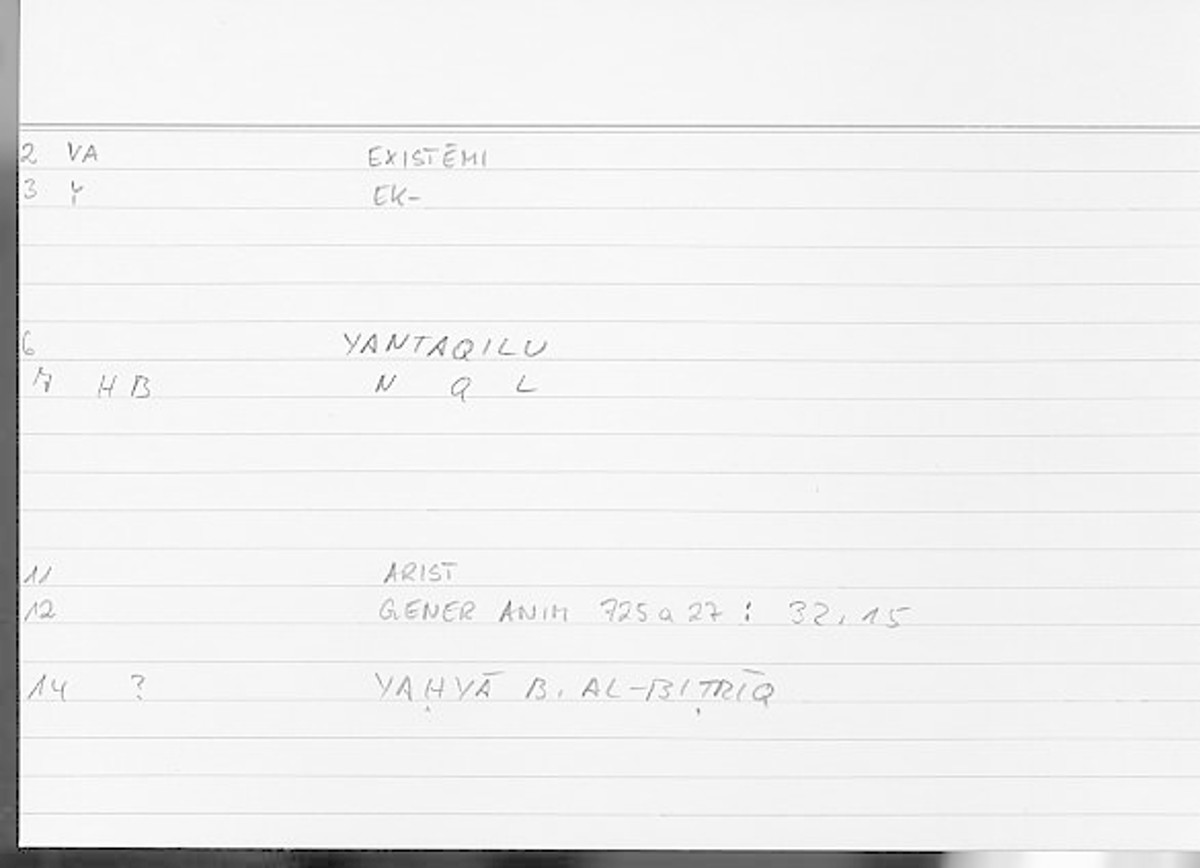 2 VA EXISTĒMI
3 Y EK-
6 YANTAQILU
7 H B N Q L
11 ARIST
12 GENER ANIM 725a27 : 32,15
14 ? YAḤYĀ B. AL-BIṬRĪQ